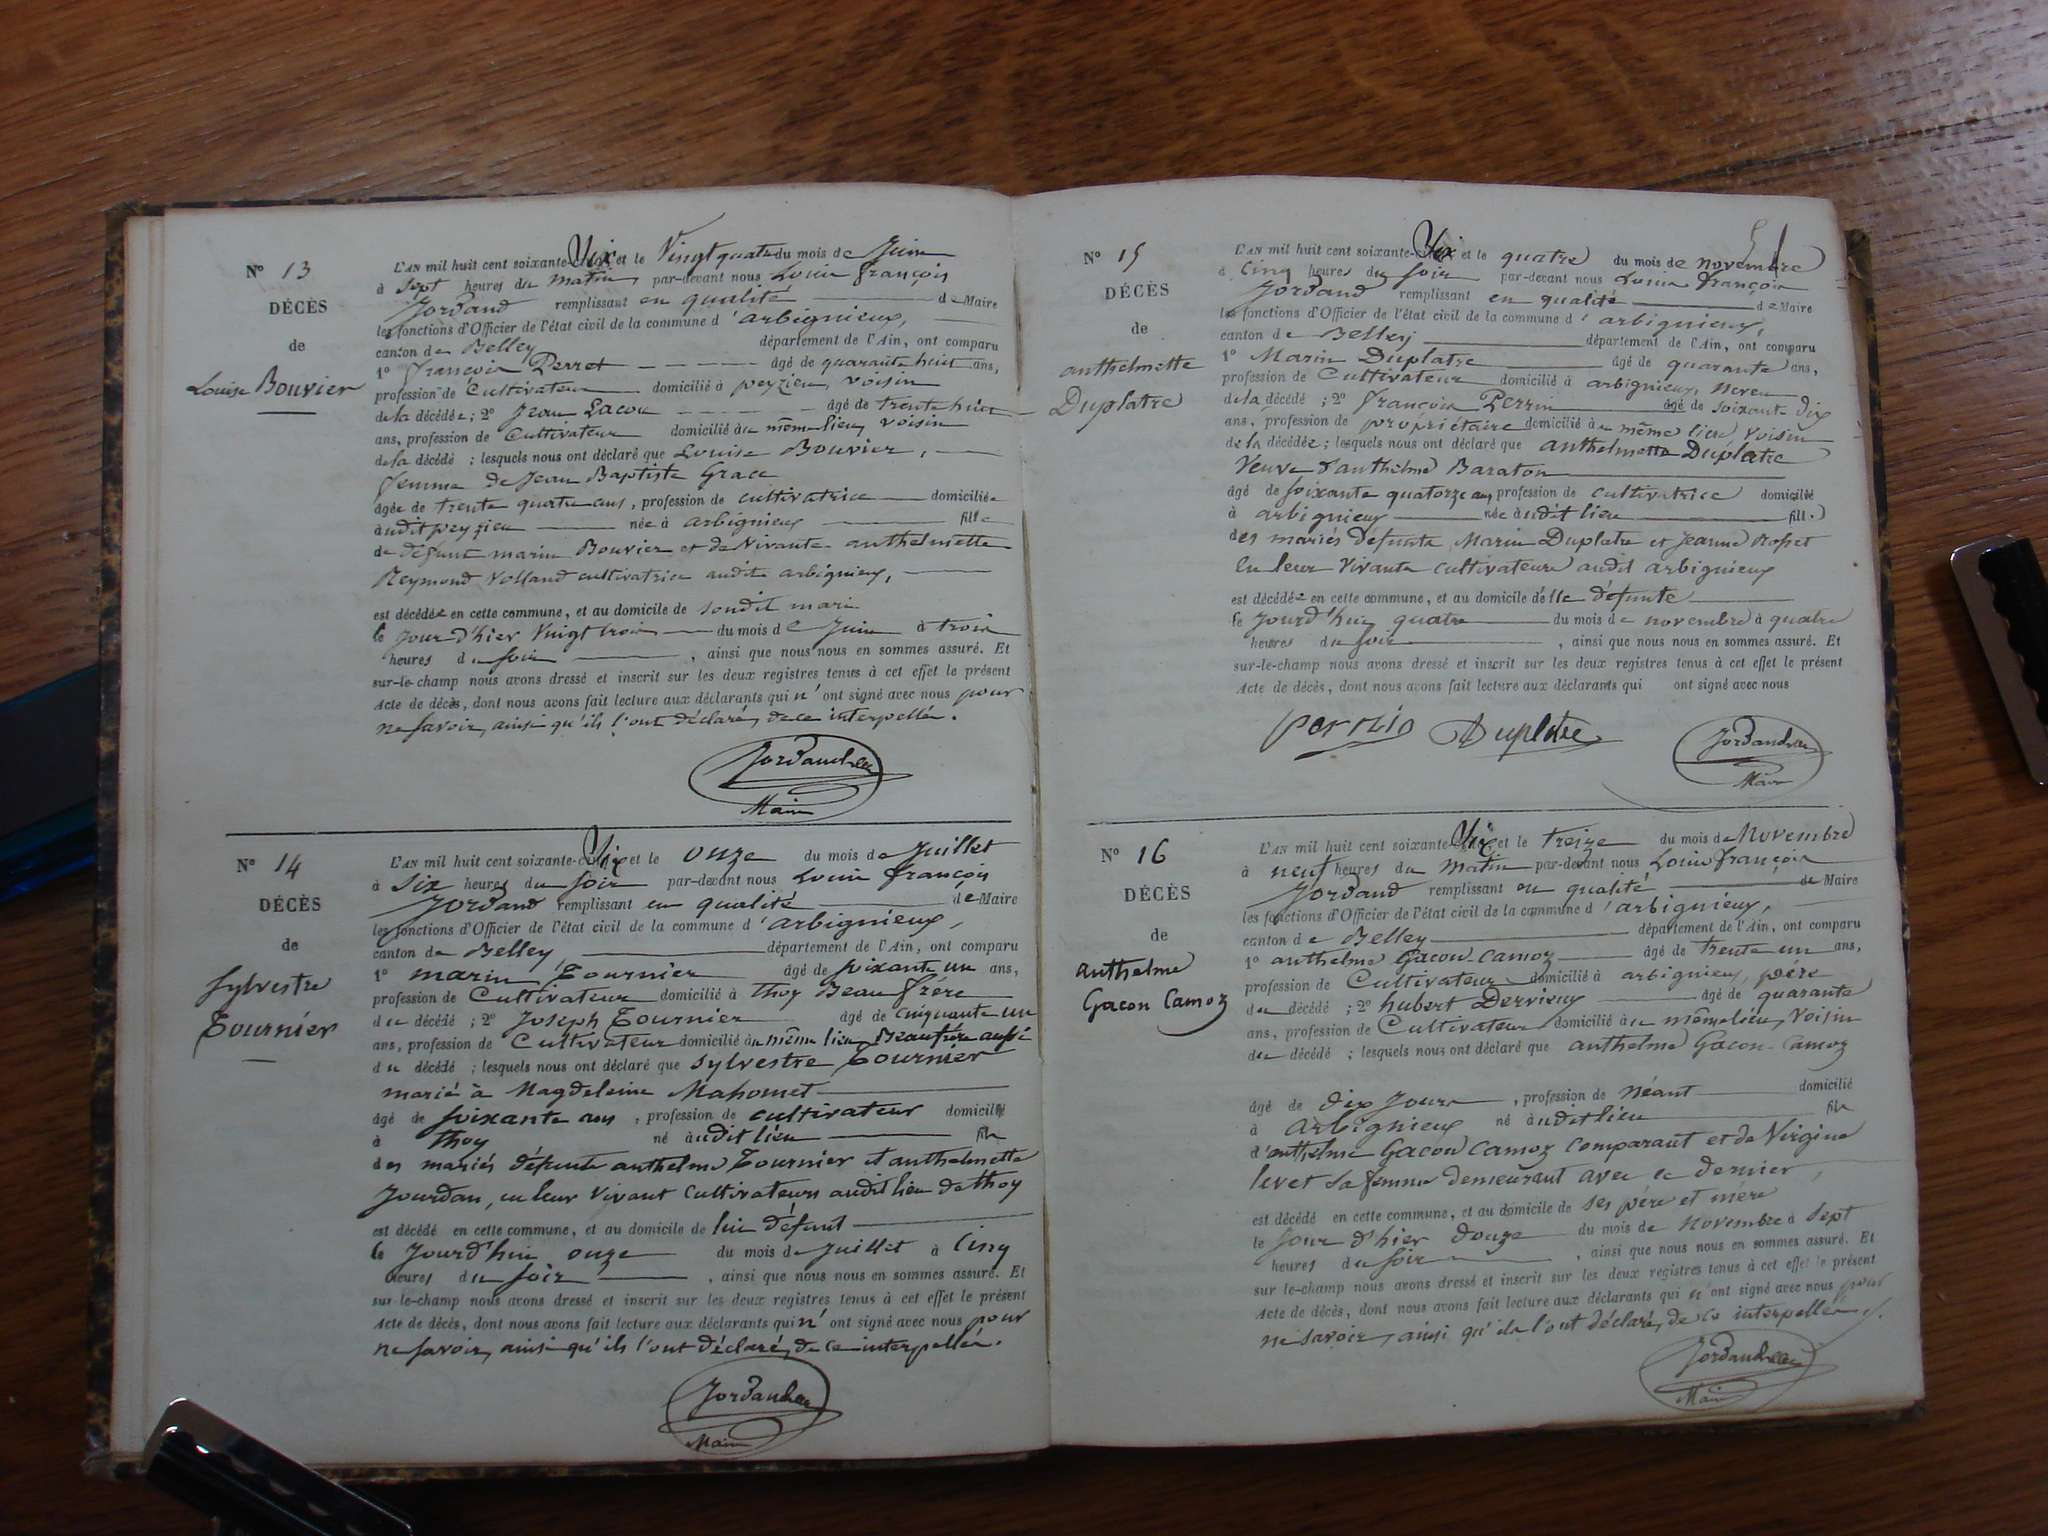 N° 13
DÉCÈS
de
Louise Bouvier
L'AN mil huit cent soixante-Dix et le Vingt quatre du mois de Juin
à Sept heures du matin, par-devant nous Louis françois
Jordand remplissant en qualité de Maire
les fonctions d'Officier de l'état civil de la commune d'arbignieux,
canton de Belley département de l'Ain, ont comparu
1° françois Perret âgé de quarante huit ans,
profession de Cultivateur domicilié à peyzieu, voisin
de la décédée; 2° Jean Lacou âgé de trente huit
ans, profession de Cultivateur domicilié au même lieu, voisin
de la décédé ; lesquels nous ont déclaré que Louise Bouvier,
femme de Jean Baptiste Grace
âgée de trente quatre ans, profession de cultivatrice domiciliée
audit peyzieu née à arbignieux fille
de défunt marin Bouvier et de Vivante anthelmette
Reymond Volland cultivatrice audit arbignieux,
est décédée en cette commune, et au domicile de sondit mari
le jour d'hier vingt trois du mois de Juin à trois
heures du soir , ainsi que nous nous en sommes assuré. Et
sur-le-champ nous avons dressé et inscrit sur les deux registres tenus à cet effet le présent
Acte de décès, dont nous avons fait lecture aux déclarants qui n'ont signé avec nous pour
ne savoir, ainsi qu'ils l'ont déclaré, de ce interpellés.
Jordand
Maire
N° 14
DÉCÈS
de
Sylvestre
Tournier
L'AN mil huit cent soixante-Dix et le onze du mois de Juillet
à Six heures du soir par-devant nous Louis françois
Jordand remplissant en qualité de Maire
les fonctions d'Officier de l'état civil de la commune d'arbignieux,
canton de Belley département de l'Ain, ont comparu
1° marin Tournier âgé de soixante un ans,
profession de Cultivateur domicilié à thoy Beau frère
du décédé ; 2° Joseph Tournier âgé de cinquante un
ans, profession de Cultivateur domicilié au même lieu Beaufrère aussi
du décédé ; lesquels nous ont déclaré que Sylvestre Tournier
marié à Magdeleine Mahomet
âgé de soixante ans , profession de cultivateur domicilié
à thoy né audit lieu fils
des mariés défunts anthelme Tournier et anthelmette
Jourdan, en leur vivant Cultivateurs audit lieu de thoy
est décédé en cette commune, et au domicile de lui défunt
le Jourd'hui onze du mois de Juillet à Cinq
heures du soir , ainsi que nous nous en sommes assuré. Et
sur-le-champ nous avons dressé et inscrit sur les deux registres tenus à cet effet le présent
Acte de décès, dont nous avons fait lecture aux déclarants qui n'ont signé avec nous pour
ne savoir, ainsi qu'ils l'ont déclaré, de ce interpellés.
Jordand
Maire
N° 15
DÉCÈS
de
anthelmette
Duplatre
L'AN mil huit cent soixante-Dix et le quatre du mois de novembre
à Cinq heures du soir par-devant nous Louis françois
Jordand remplissant en qualité de Maire
les fonctions d'Officier de l'état civil de la commune d'arbignieux,
canton de Belley département de l'Ain, ont comparu
1° Marin Duplatre âgé de quarante ans,
profession de Cultivateur domicilié à arbignieux, Neveu
de la décédé ; 2° françois Perrin âgé de soixante dix
ans, profession de propriétaire domicilié au même lieu, voisin
de la décédée ; lesquels nous ont déclaré que anthelmette Duplatre
Veuve d'anthelme Baraton
âgé de soixante quatorze ans, profession de cultivatrice domicilié
à arbignieux née audit lieu fille
des mariés défunts, Marin Duplatre et Jeanne Rosset
En leur vivants cultivateurs audit arbignieux
est décédée en cette commune, et au domicile d'elle défunte
le Jourd'hui quatre du mois de novembre à quatre
heures du soir , ainsi que nous nous en sommes assuré. Et
sur-le-champ nous avons dressé et inscrit sur les deux registres tenus à cet effet le présent
Acte de décès, dont nous avons fait lecture aux déclarants qui ont signé avec nous
Duplatre
Jordand
Maire
N° 16
DÉCÈS
de
Anthelme
Gacon Camoz
L'AN mil huit cent soixante-Dix et le treize du mois de Novembre
à neuf heures du matin par-devant nous Louis françois
Jordand remplissant en qualité de Maire
les fonctions d'Officier de l'état civil de la commune d'arbignieux,
canton de Belley département de l'Ain, ont comparu
1° anthelme Gacon Camoz âgé de trente un ans,
profession de Cultivateur domicilié à arbignieux, père
du décédé ; 2° hubert Dervieux âgé de quarante
ans, profession de Cultivateur domicilié au même lieu, voisin
du décédé ; lesquels nous ont déclaré que anthelme Gacon-Camoz
âgé de dix jours , profession de néant domicilié
à Arbignieux né audit lieu fils
d'anthelme Gacon Camoz comparant et de Virginie
levet sa femme demeurant avec ce dernier,
est décédé en cette commune, et au domicile de ses père et mère
le jour d'hier douze du mois de novembre à Sept
heures du soir , ainsi que nous nous en sommes assuré. Et
sur-le-champ nous avons dressé et inscrit sur les deux registres tenus à cet effet le présent
Acte de décès, dont nous avons fait lecture aux déclarants qui n'ont signé avec nous pour
ne savoir, ainsi qu'ils l'ont déclaré, de ce interpellés.
Jordand
Maire